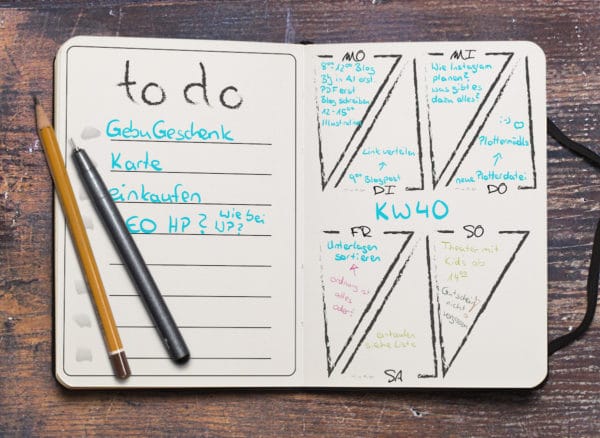 to do
GebuGeschenk
Karte
einkaufen
EO HP? wie bei
WP?
MO
8:00-12:00 Blog
Bj in AI erst.
PDF erst
Blog schreiben
12-15:00
Illustration
Link verteilen
9:00 Blogpost
DI
MI
Wie Instagram
planen?
was gibt es
dazu alles?
:-)
Plottermädls
neue Plotterdatei
DO
KW40
FR
Unterlagen
sortieren
ordnung ist
alles
oder?
einkaufen
siehe Liste
SA
SO
Theater mit
Kids ab
14:00
Gutschein
nicht
vergessen